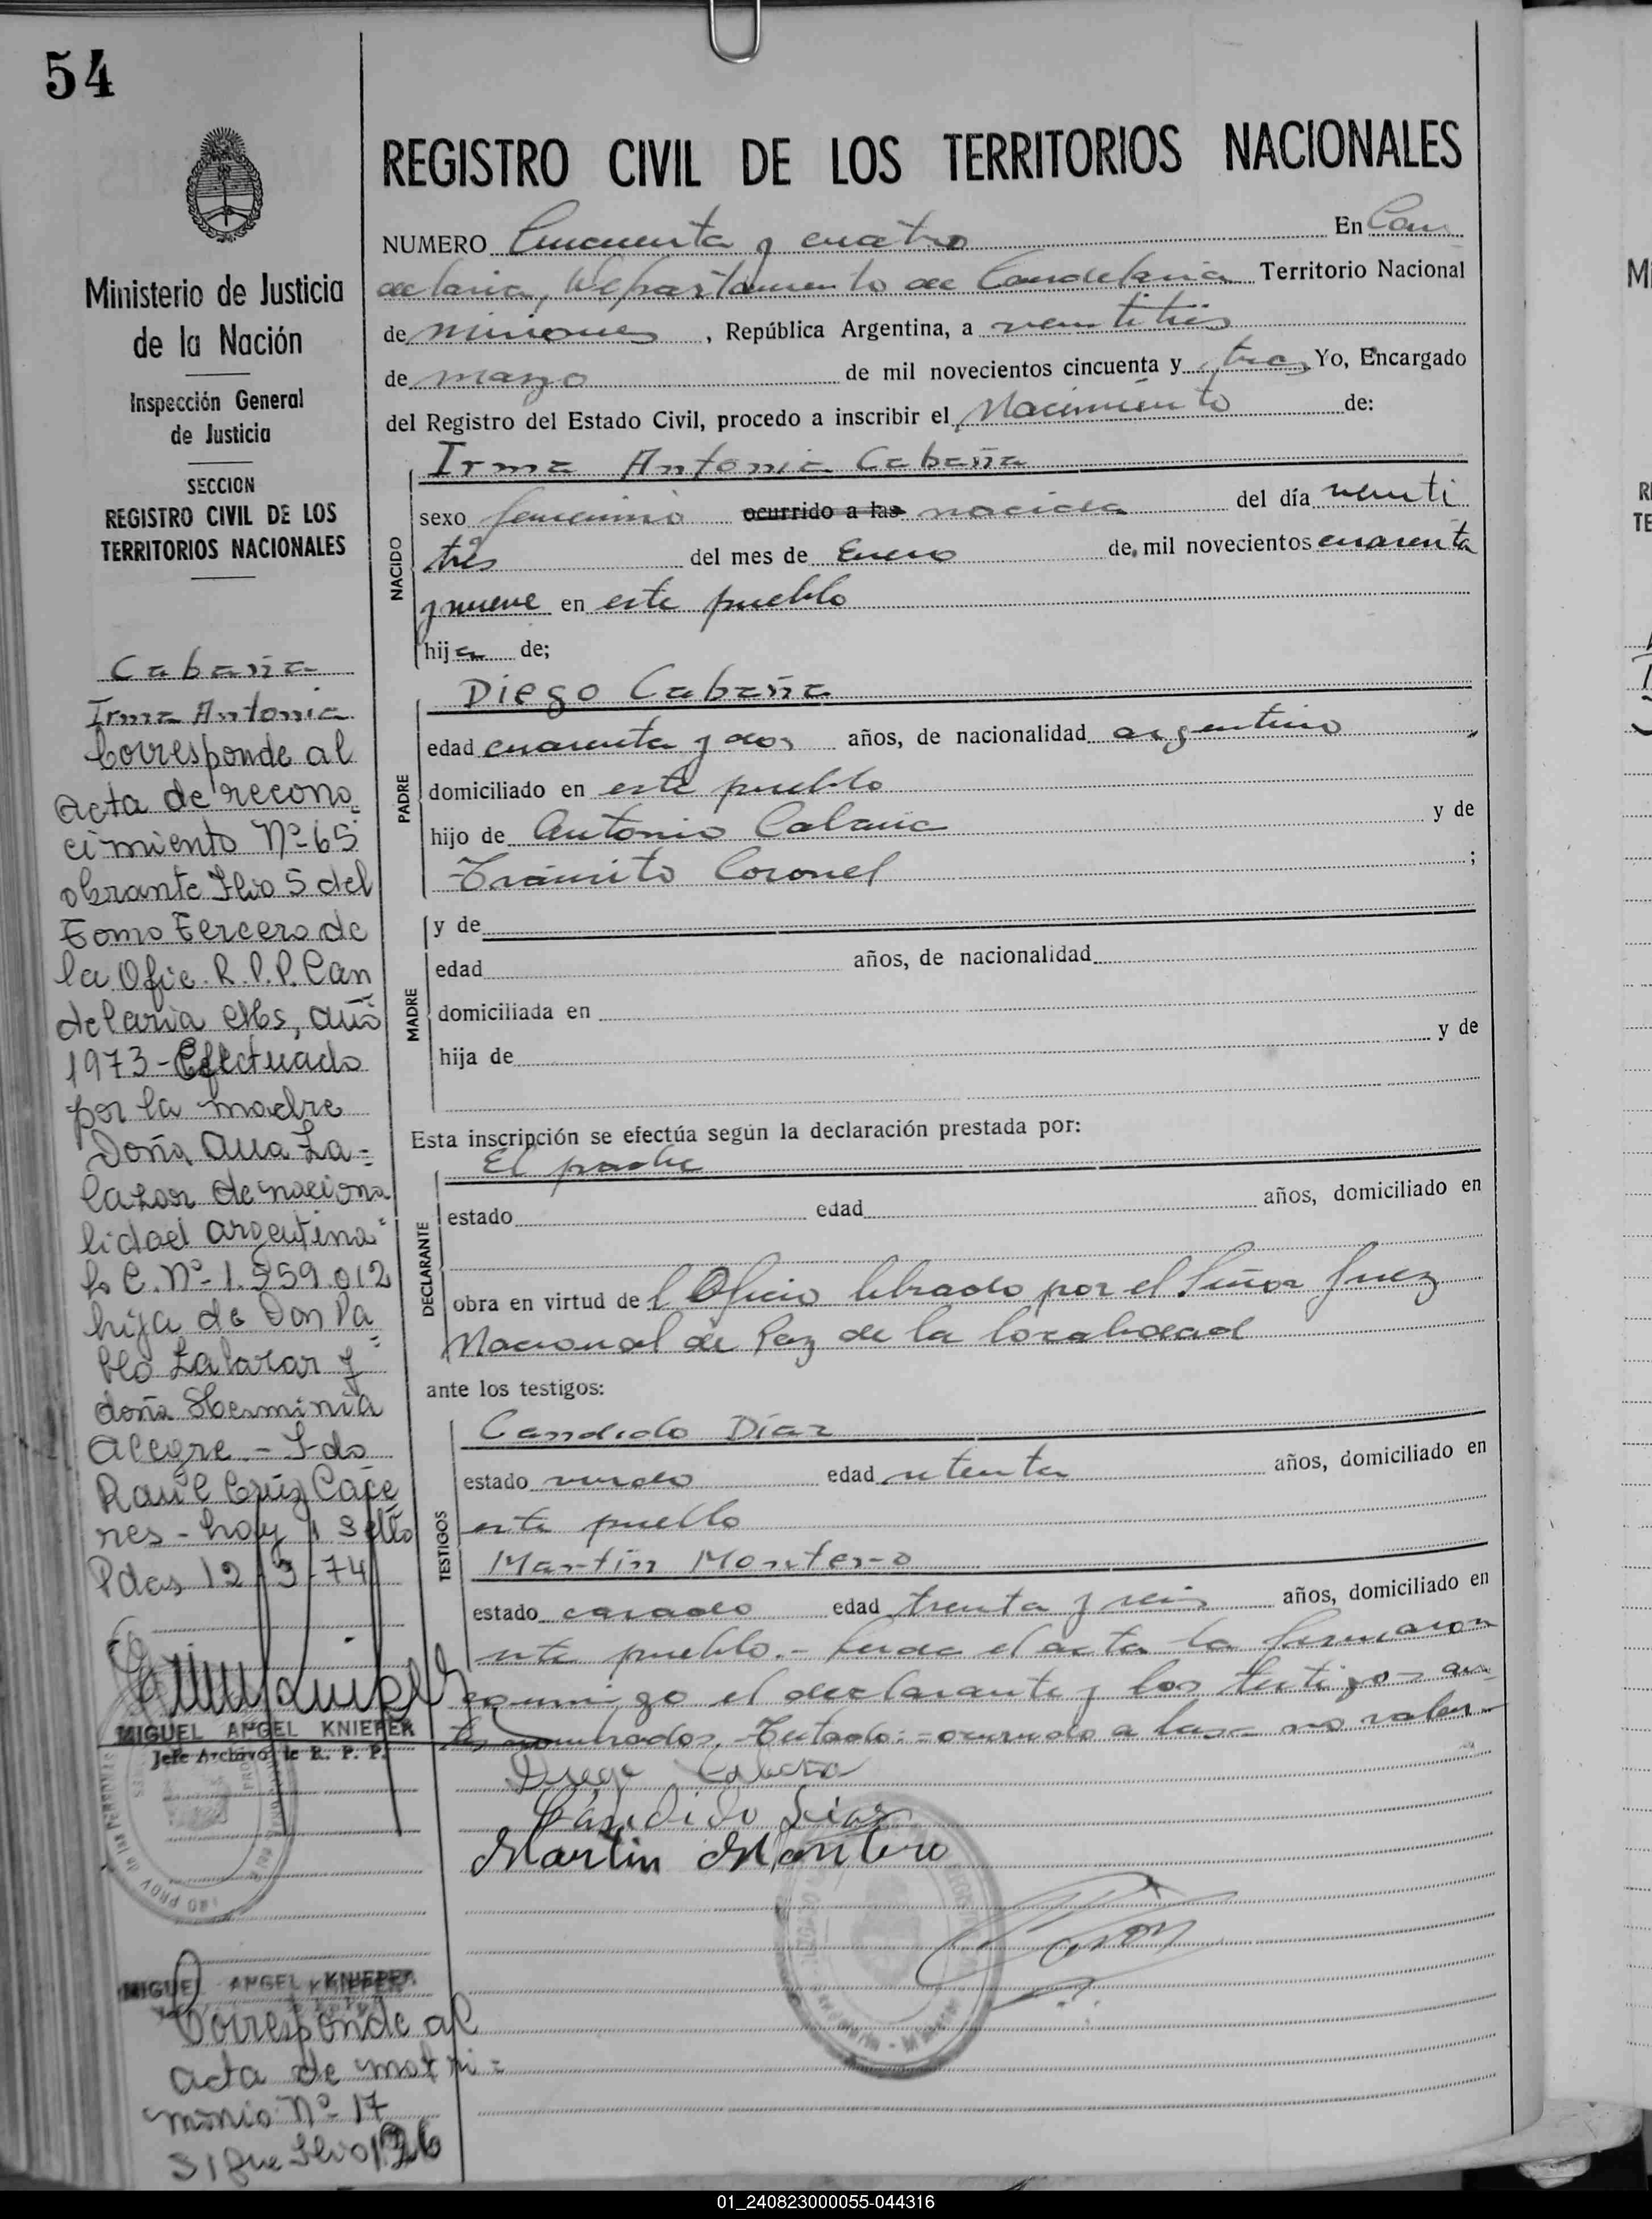 54
Ministerio de Justicia
de la Nación
Inspección General
de Justicia
SECCION
REGISTRO CIVIL DE LOS
TERRITORIOS NACIONALES
Cabaña
Irma Antonia
Corresponde al
acta de recono
cimiento Nº 65
obrante Flio 5 del
Tomo Tercero de
la Ofic. R.P.P. Can
delaria Ms, año
1973 - Efectuado
por la madre
Doña Ana La=
lazar de naciona
lidad argentina
L.C. Nº 1.959.012
hija de Don Pa
blo Lalazar y
doña Herminia
Alegre - Fdo
Raúl Cruz Cáce
res - hoy
Pdas 12/9/74
MIGUEL ANGEL KNIEPER
Jefe Archivo de R. P. P.
MIGUEL ANGEL KNIEPER
Corresponde al
acta de matri=
monio Nº 17
sigue Flio 126
REGISTRO CIVIL DE LOS TERRITORIOS NACIONALES
NUMERO Cincuenta y cuatro En Can
delaria, Departamento de Candelaria Territorio Nacional
de Misiones, República Argentina, a veintitrés
de marzo de mil novecientos cincuenta y tres Yo, Encargado
del Registro del Estado Civil, procedo a inscribir el Nacimiento de:
Irma Antonia Cabaña
NACIDO
sexo femenino ocurrido a las nacida del día veinti
trés del mes de Enero de mil novecientos cuarenta
y nueve en este pueblo
hija de;
Diego Cabaña
PADRE
edad cuarenta y dos años, de nacionalidad argentino
domiciliado en este pueblo
hijo de Antonio Cabaña y de
Tránsito Coronel ;
MADRE
y de
edad años, de nacionalidad
domiciliada en
hija de y de
Esta inscripción se efectúa según la declaración prestada por:
El padre
DECLARANTE
estado edad años, domiciliado en
obra en virtud del Oficio librado por el Señor Juez
Nacional de Paz de la localidad
ante los testigos:
TESTIGOS
Candido Díaz
estado viudo edad setenta años, domiciliado en
este pueblo
Martín Montero
estado casado edad treinta y seis años, domiciliado en
este pueblo.- Leída el acta la firmaron
conmigo el declarante y los testigos an
tes nombrados. Testado:=ocurrido a las= no valen
Diego Cabaña
Cándido Díaz
Martin Montero
01_240823000055-044316